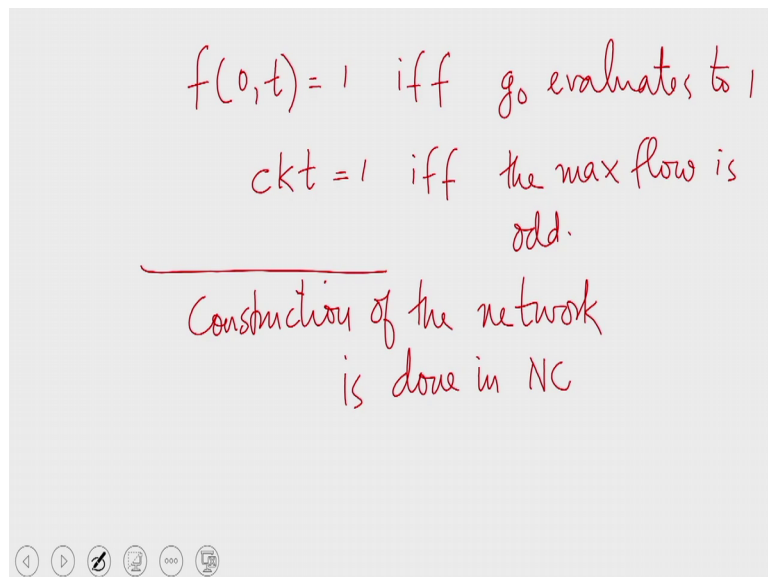 f(0,t) = 1 iff g₀ evaluates to 1
ckt = 1 iff the max flow is
odd.
Construction of the network
is done in NC